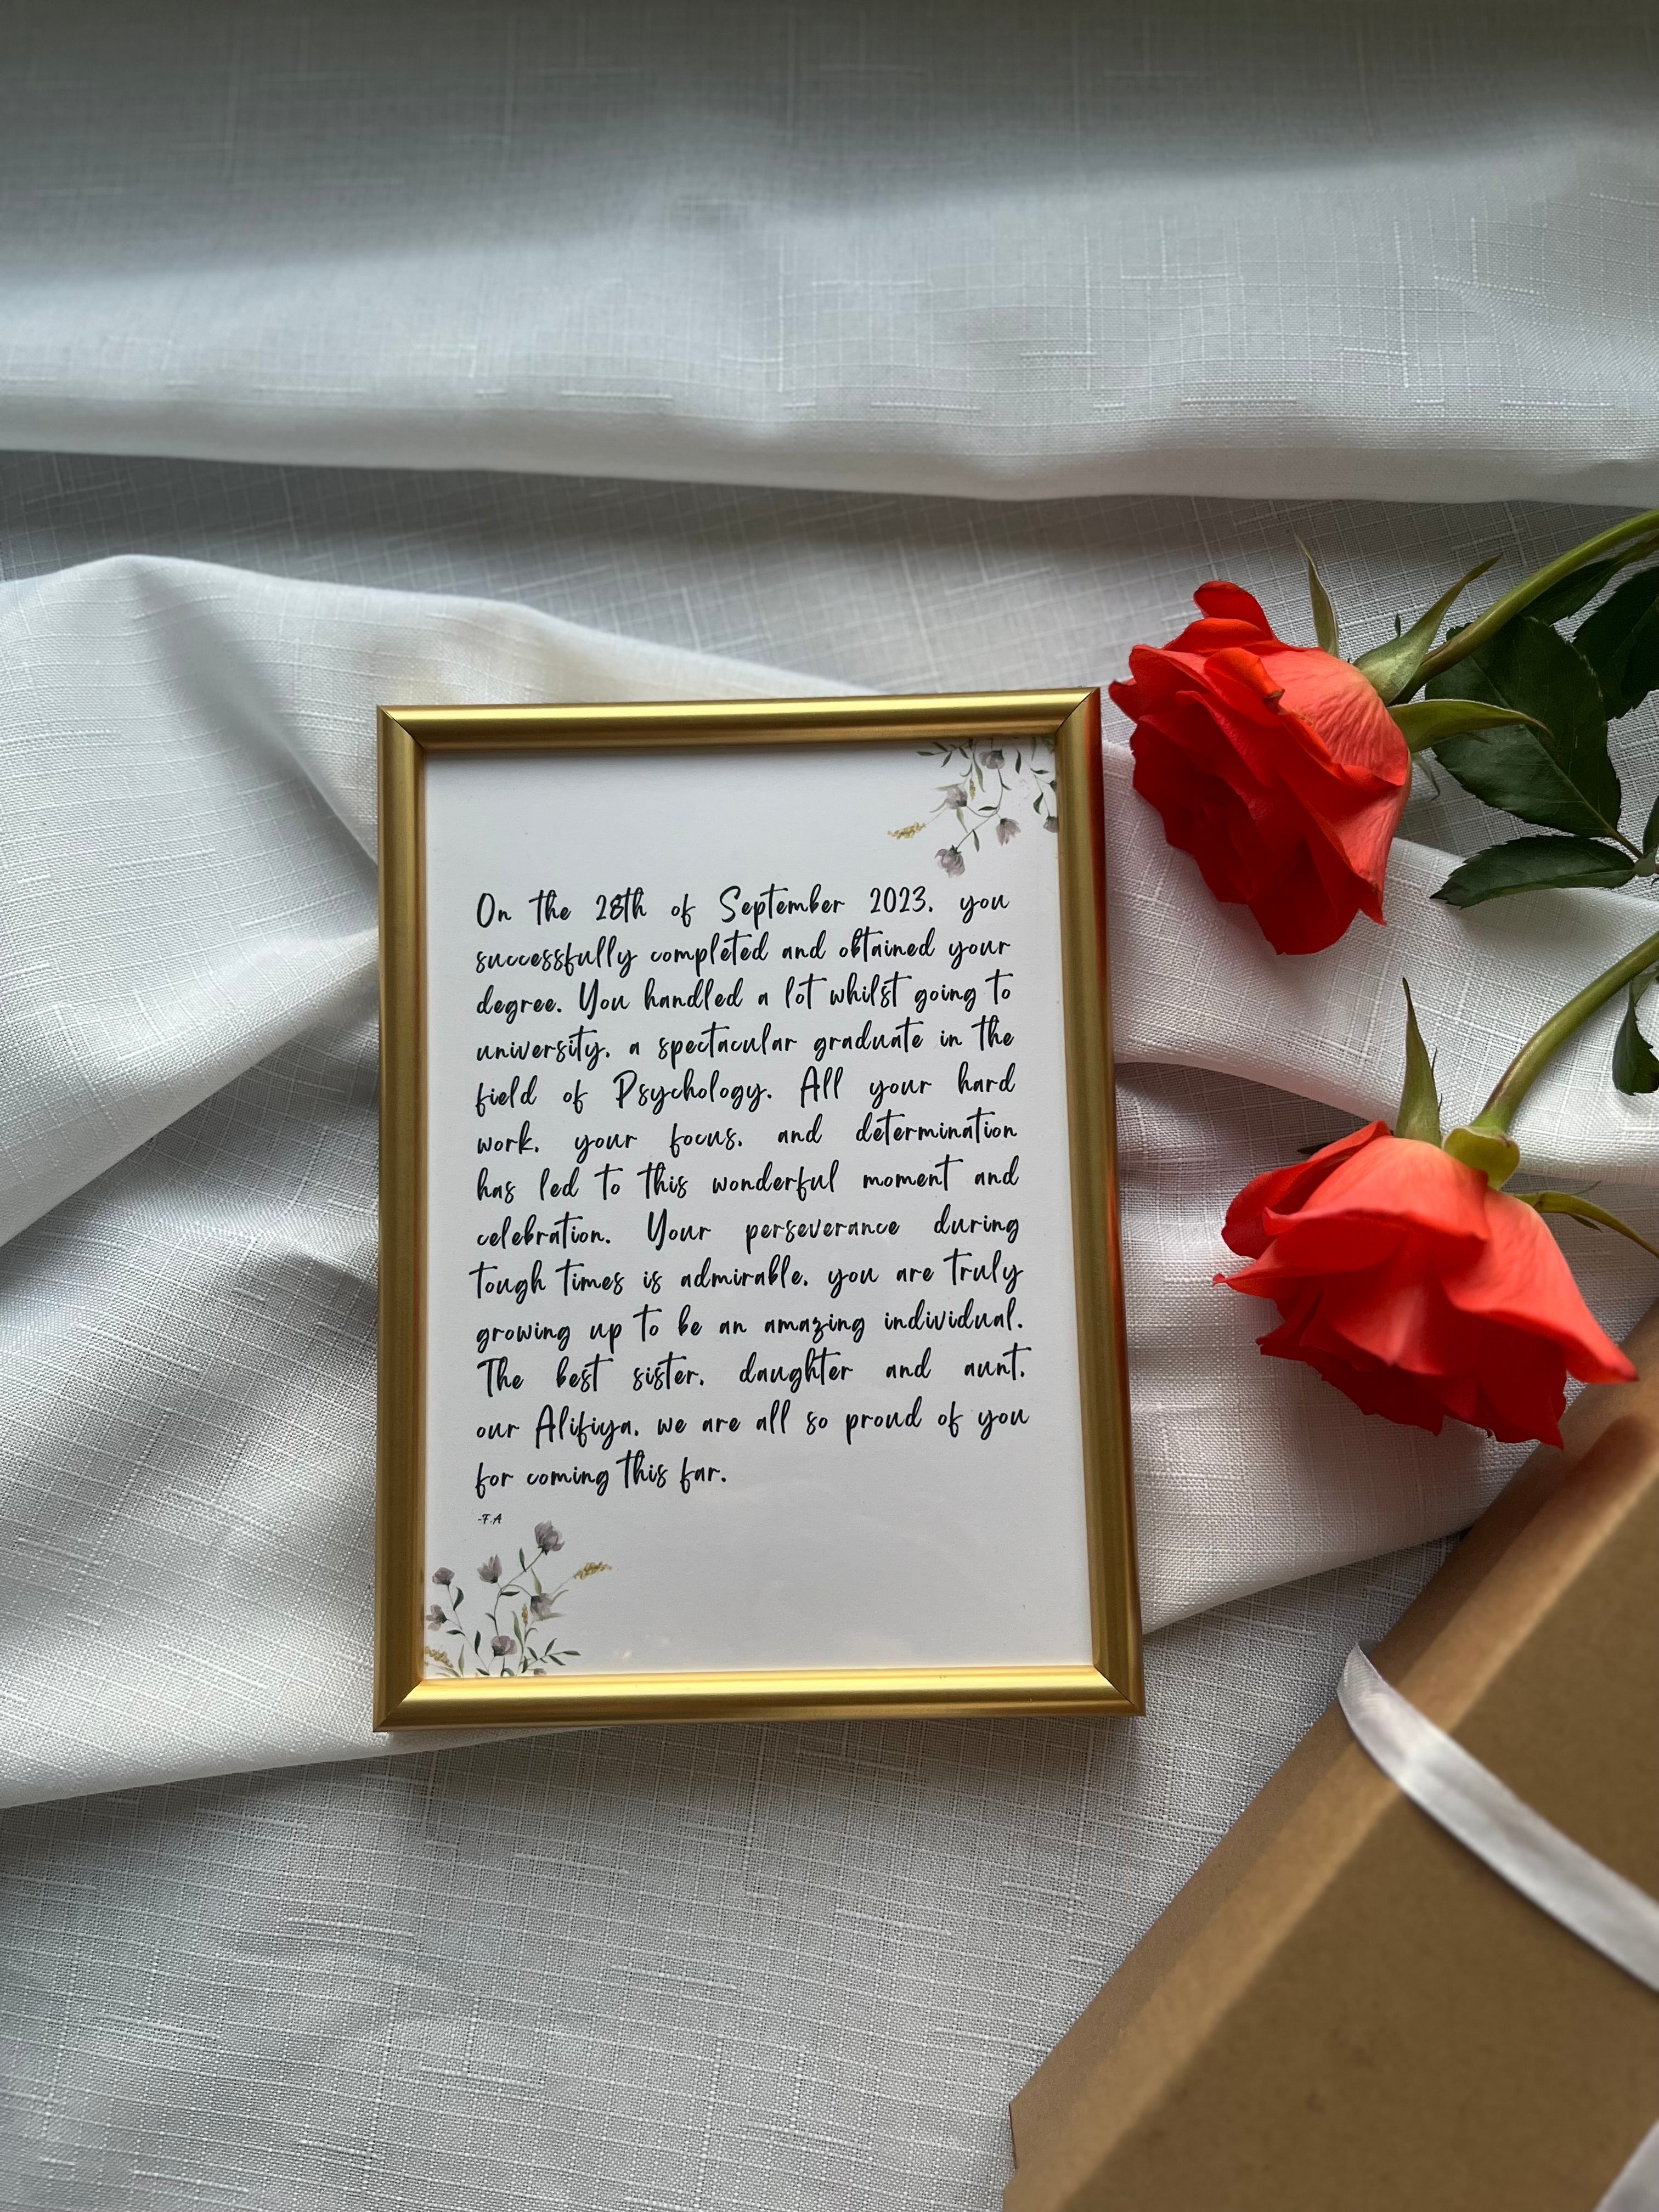 On the 28th of September 2023, you
successfully completed and obtained your
degree. You handled a lot whilst going to
university, a spectacular graduate in the
field of Psychology. All your hard
work, your focus, and determination
has led to this wonderful moment and
celebration. Your perseverance during
tough times is admirable, you are truly
growing up to be an amazing individual.
The best sister, daughter and aunt,
our Alifiya, we are all so proud of you
for coming this far.
-F.A